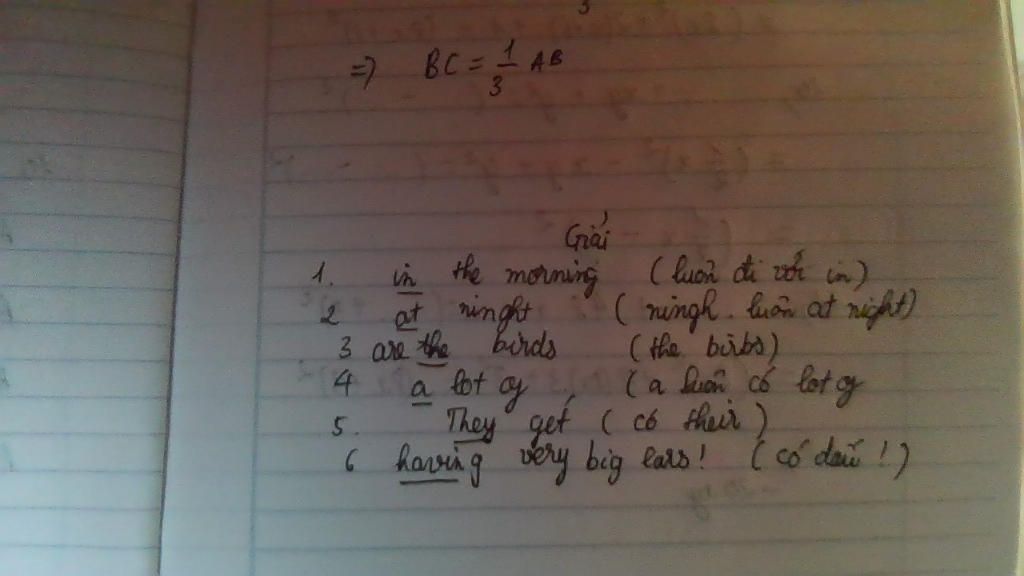 3
=> BC = 1/3 AB
Giải
1. in the morning (luôn đi với in)
2 at ninght (ningh. luôn at night)
3 are the birds (the birbs)
4 a lot oy (a luôn có lot oy
5. They get (có their)
6 having very big ears! (có dấu !)